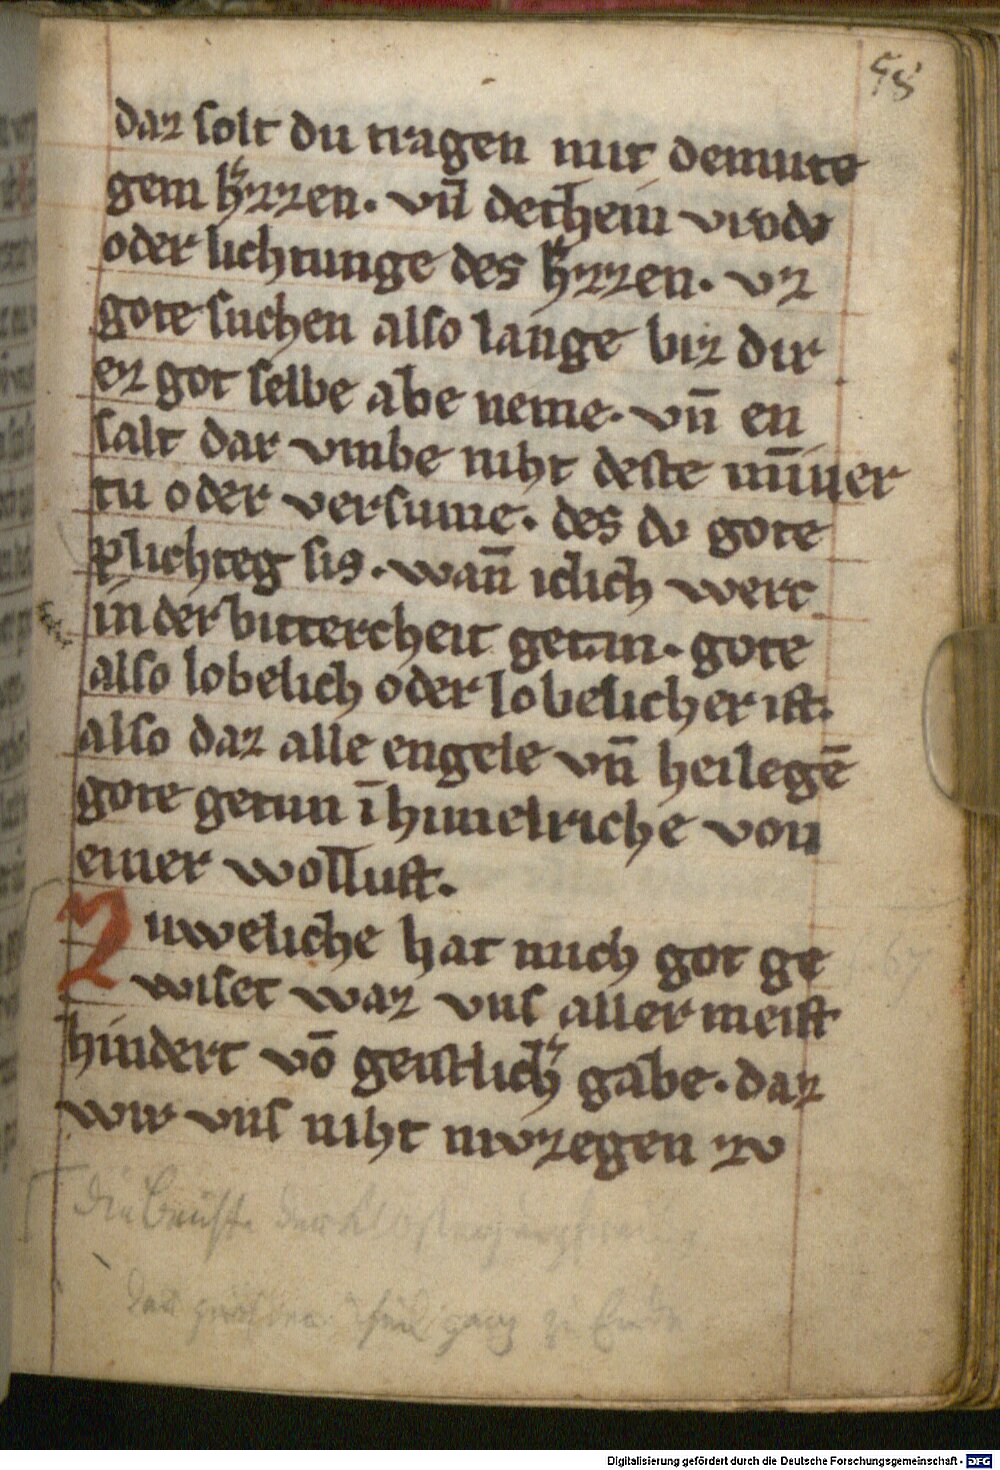 58
daz solt du tragen mit demute
gem h'zzen. vn̄ dechein vrodv
oder lichtunge des h'zzen. vz
gote suchen also lange biz dir
ez got selbe abe neme. vn̄ en
salt dar vmbe niht deste min̄er
tu oder versume. des dv gote
plichteg sis. wan̄ iclich werc
in der bittercheit getan. gote
also lobelich oder lobelicher ist.
also daz alle engele vn̄ heilegē
gote getun ī himelriche von
einer wollust.
Zuweliche hat mich got ge
wiset waz vns aller meist
hindert vō geistlich' gabe. daz
wir vns niht mvzegen zv
Digitalisierung gefördert durch die Deutsche Forschungsgemeinschaft - DFG